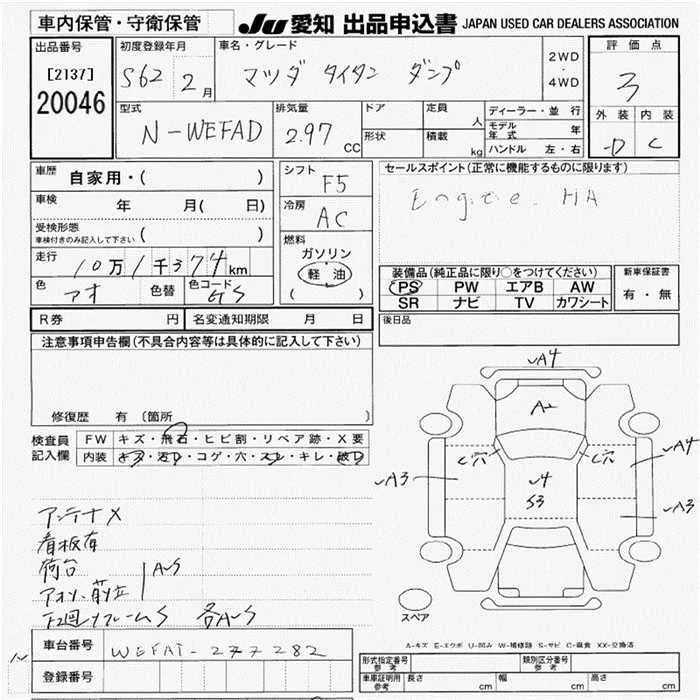 車内保管・守衛保管
JU 愛知 出品申込書 JAPAN USED CAR DEALERS ASSOCIATION
出品番号
[2137]
20046
初度登録年月
S62 2月
車名・グレード
マツダ タイタン ダンプ
2WD
・
4WD
評価点
3
外装 内装
D C
型式
N-WEFAD
排気量
2.97 CC
ドア
形状
定員 人
積載 kg
ディーラー・並行
モデル年式 年
ハンドル 左・右
車歴 自家用・( )
車検 年 月( 日)
受検形態
車検付きのみ記入して下さい ( )
走行 10万1千374km
色 アオ 色替 色コード GS
シフト F5
冷房 AC
燃料
ガソリン
軽油
( )
セールスポイント(正常に機能するものに限ります)
Engine. HA
装備品(純正品に限り○をつけてください)
PS PW エアB AW
SR ナビ TV カワシート
新車保証書
有・無
R券 円 名変通知期限 月 日
後日品
注意事項申告欄(不具合内容等は具体的に記入して下さい)
修復歴 有 〔箇所 〕
検査員
記入欄
FW キズ・飛石・ヒビ割・リペア跡・X要
内装 キズ・汚レ・コゲ・穴・スレ・キレ・破レ
アンテナX
看板有
荷台
アオリ・前立 AS
下回リフレームS 各AS
A4
A2
C穴 C穴
A4
A3
4
S3
A3
スペア
A-キズ E-エクボ U-凹み W-補修跡 S-サビ C-腐食 XX-交換済
車台番号 WEFAT-277282
登録番号
形式指定番号
参考
類別区分番号
参考
車庫証明用
参考
長さ cm 幅 cm 高さ cm